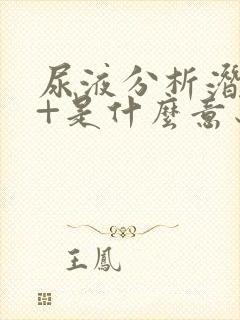 尿液分析潛
+是什麼意
王鳳